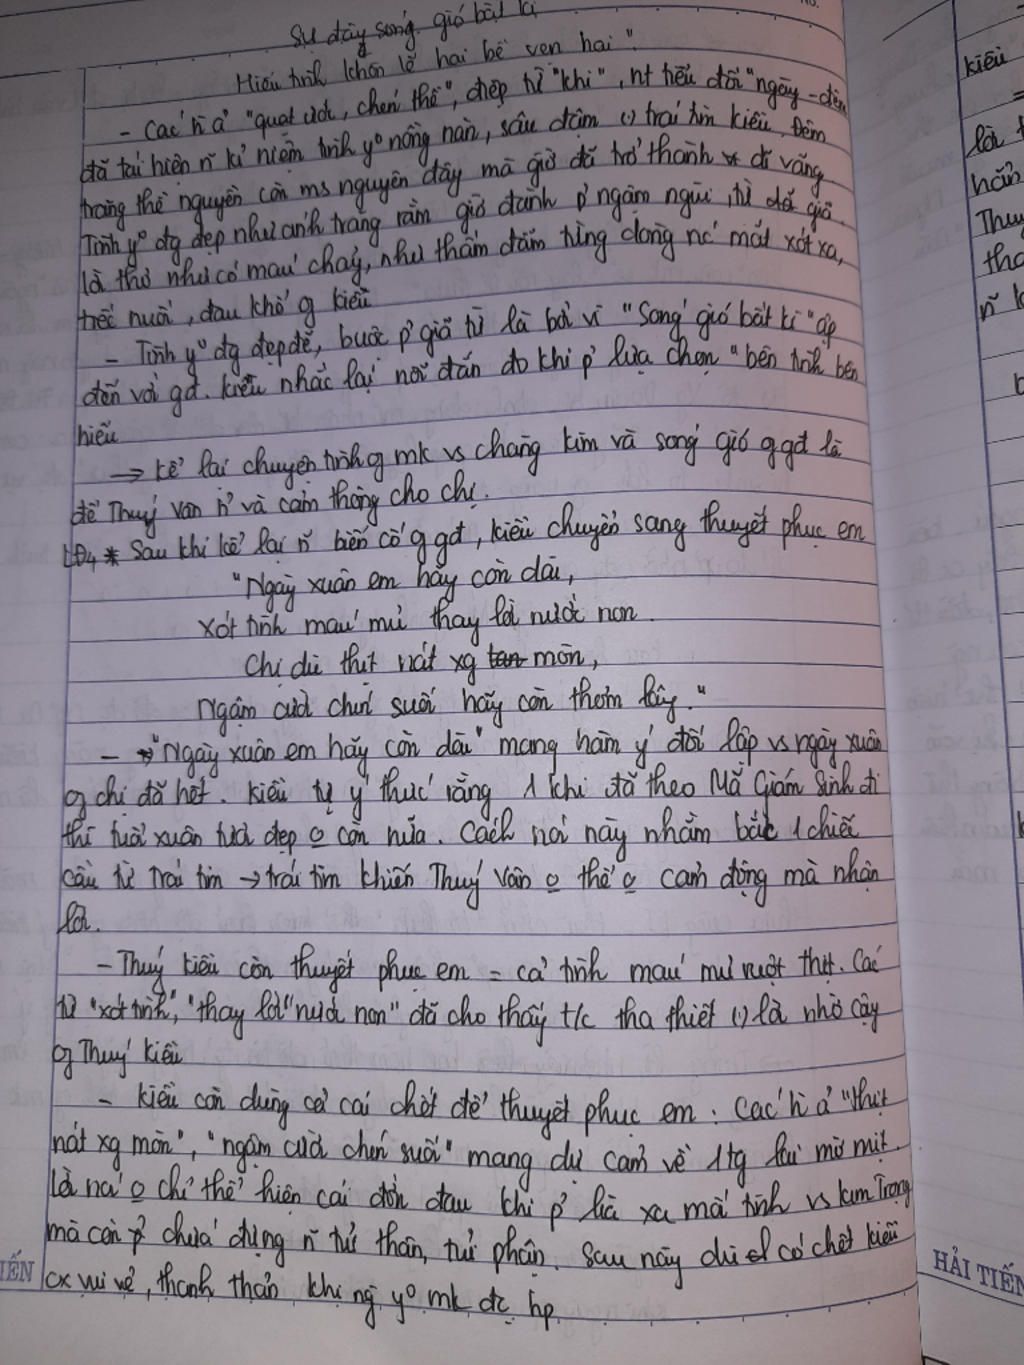 Sự đây sóng gió bất kì
Hiếu tình khôn lẽ hai bề vẹn hai".
- Các h/ả "quạt ước, chén thề", điệp từ "khi", nt tiểu đối "ngày - đêm
đã tái hiện n~ kỉ niệm tình yº nồng nàn, sâu đậm (.) trái tim kiều. Đêm
trăng thề nguyền còn ms nguyên đây mà giờ đã trở thành dĩ vãng
Tình yº đg đẹp như ánh trăng rằm giờ đành p' ngậm ngùi, từ dã
là thơ như có máu chảy, như thấm đẫm từng dòng nc' mắt xót xa,
tiếc nuối, đau khổ g kiều
- Tình yº đg đẹp đẽ, buộc p' giã từ là bởi vì "Sóng gió bất kì" ập
đến với gđ. kiều nhắc lại nỗi đắn đo khi p' lựa chọn "bên tình bên
hiếu
→ kể lại chuyện tình g mk vs chàng kim và sóng gió g gđ là
để Thuý Vân h' và cảm thông cho chị.
LĐ4 * Sau khi kể lại n~ biến cố g gđ, kiều chuyển sang thuyết phục em
"Ngày xuân em hãy còn dài,
Xót tình máu mủ thay lời nước non.
Chị dù thịt nát xg mòn,
Ngậm cười chín suối hãy còn thơm lây."
- "Ngày xuân em hãy còn dài" mang hàm ý đối lập vs ngày xuân
g chị đã hết. kiều tự ý thức rằng 1 khi đã theo Mã Giám Sinh đi
thì tuổi xuân tươi đẹp o còn nữa. Cách nói này nhằm bắc 1 chiếc
cầu từ trái tim → trái tim khiến Thuý Vân o thể o cảm động mà nhận
lời.
- Thuý kiều còn thuyết phục em = cả tình máu mủ ruột thịt. Các
từ "xót tình", "thay lời" "nước non" đã cho thấy t/c tha thiết (.) lời nhờ cậy
g Thuý kiều
- kiều còn dùng cả cái chết để thuyết phục em. Các h/ả "thịt
nát xg mòn", "ngậm cười chín suối" mang dự cảm về 1 tg lai mờ mịt.
Lời nói o chỉ thể hiện cái đớn đau khi p' lìa xa mối tình vs kim Trọng
mà còn chứa đựng n~ tủi thân, tủi phận. Sau này dù có chết kiều
cx vui vẻ, thanh thản khi ng` yº mk đc hp
HẢI TIẾN
kiều